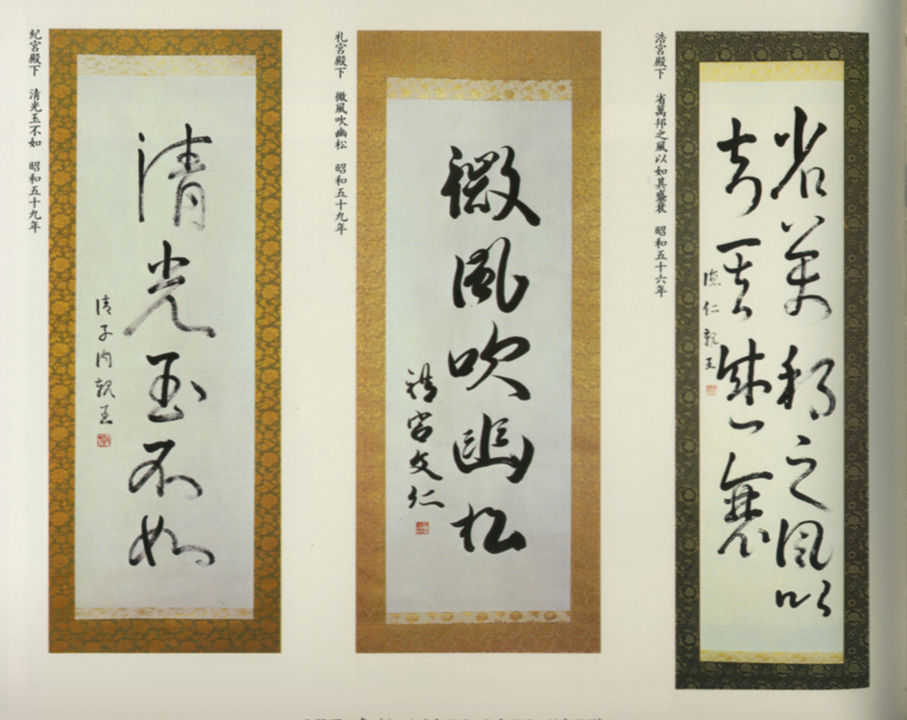 浩宮殿下　省萬邦之風以如其盛衰　昭和五十六年
省萬邦之風以
知其盛衰
徳仁親王
礼宮殿下　微風吹幽松　昭和五十九年
微風吹幽松
禮宮文仁
紀宮殿下　清光玉不如　昭和五十九年
清光玉不如
清子内親王